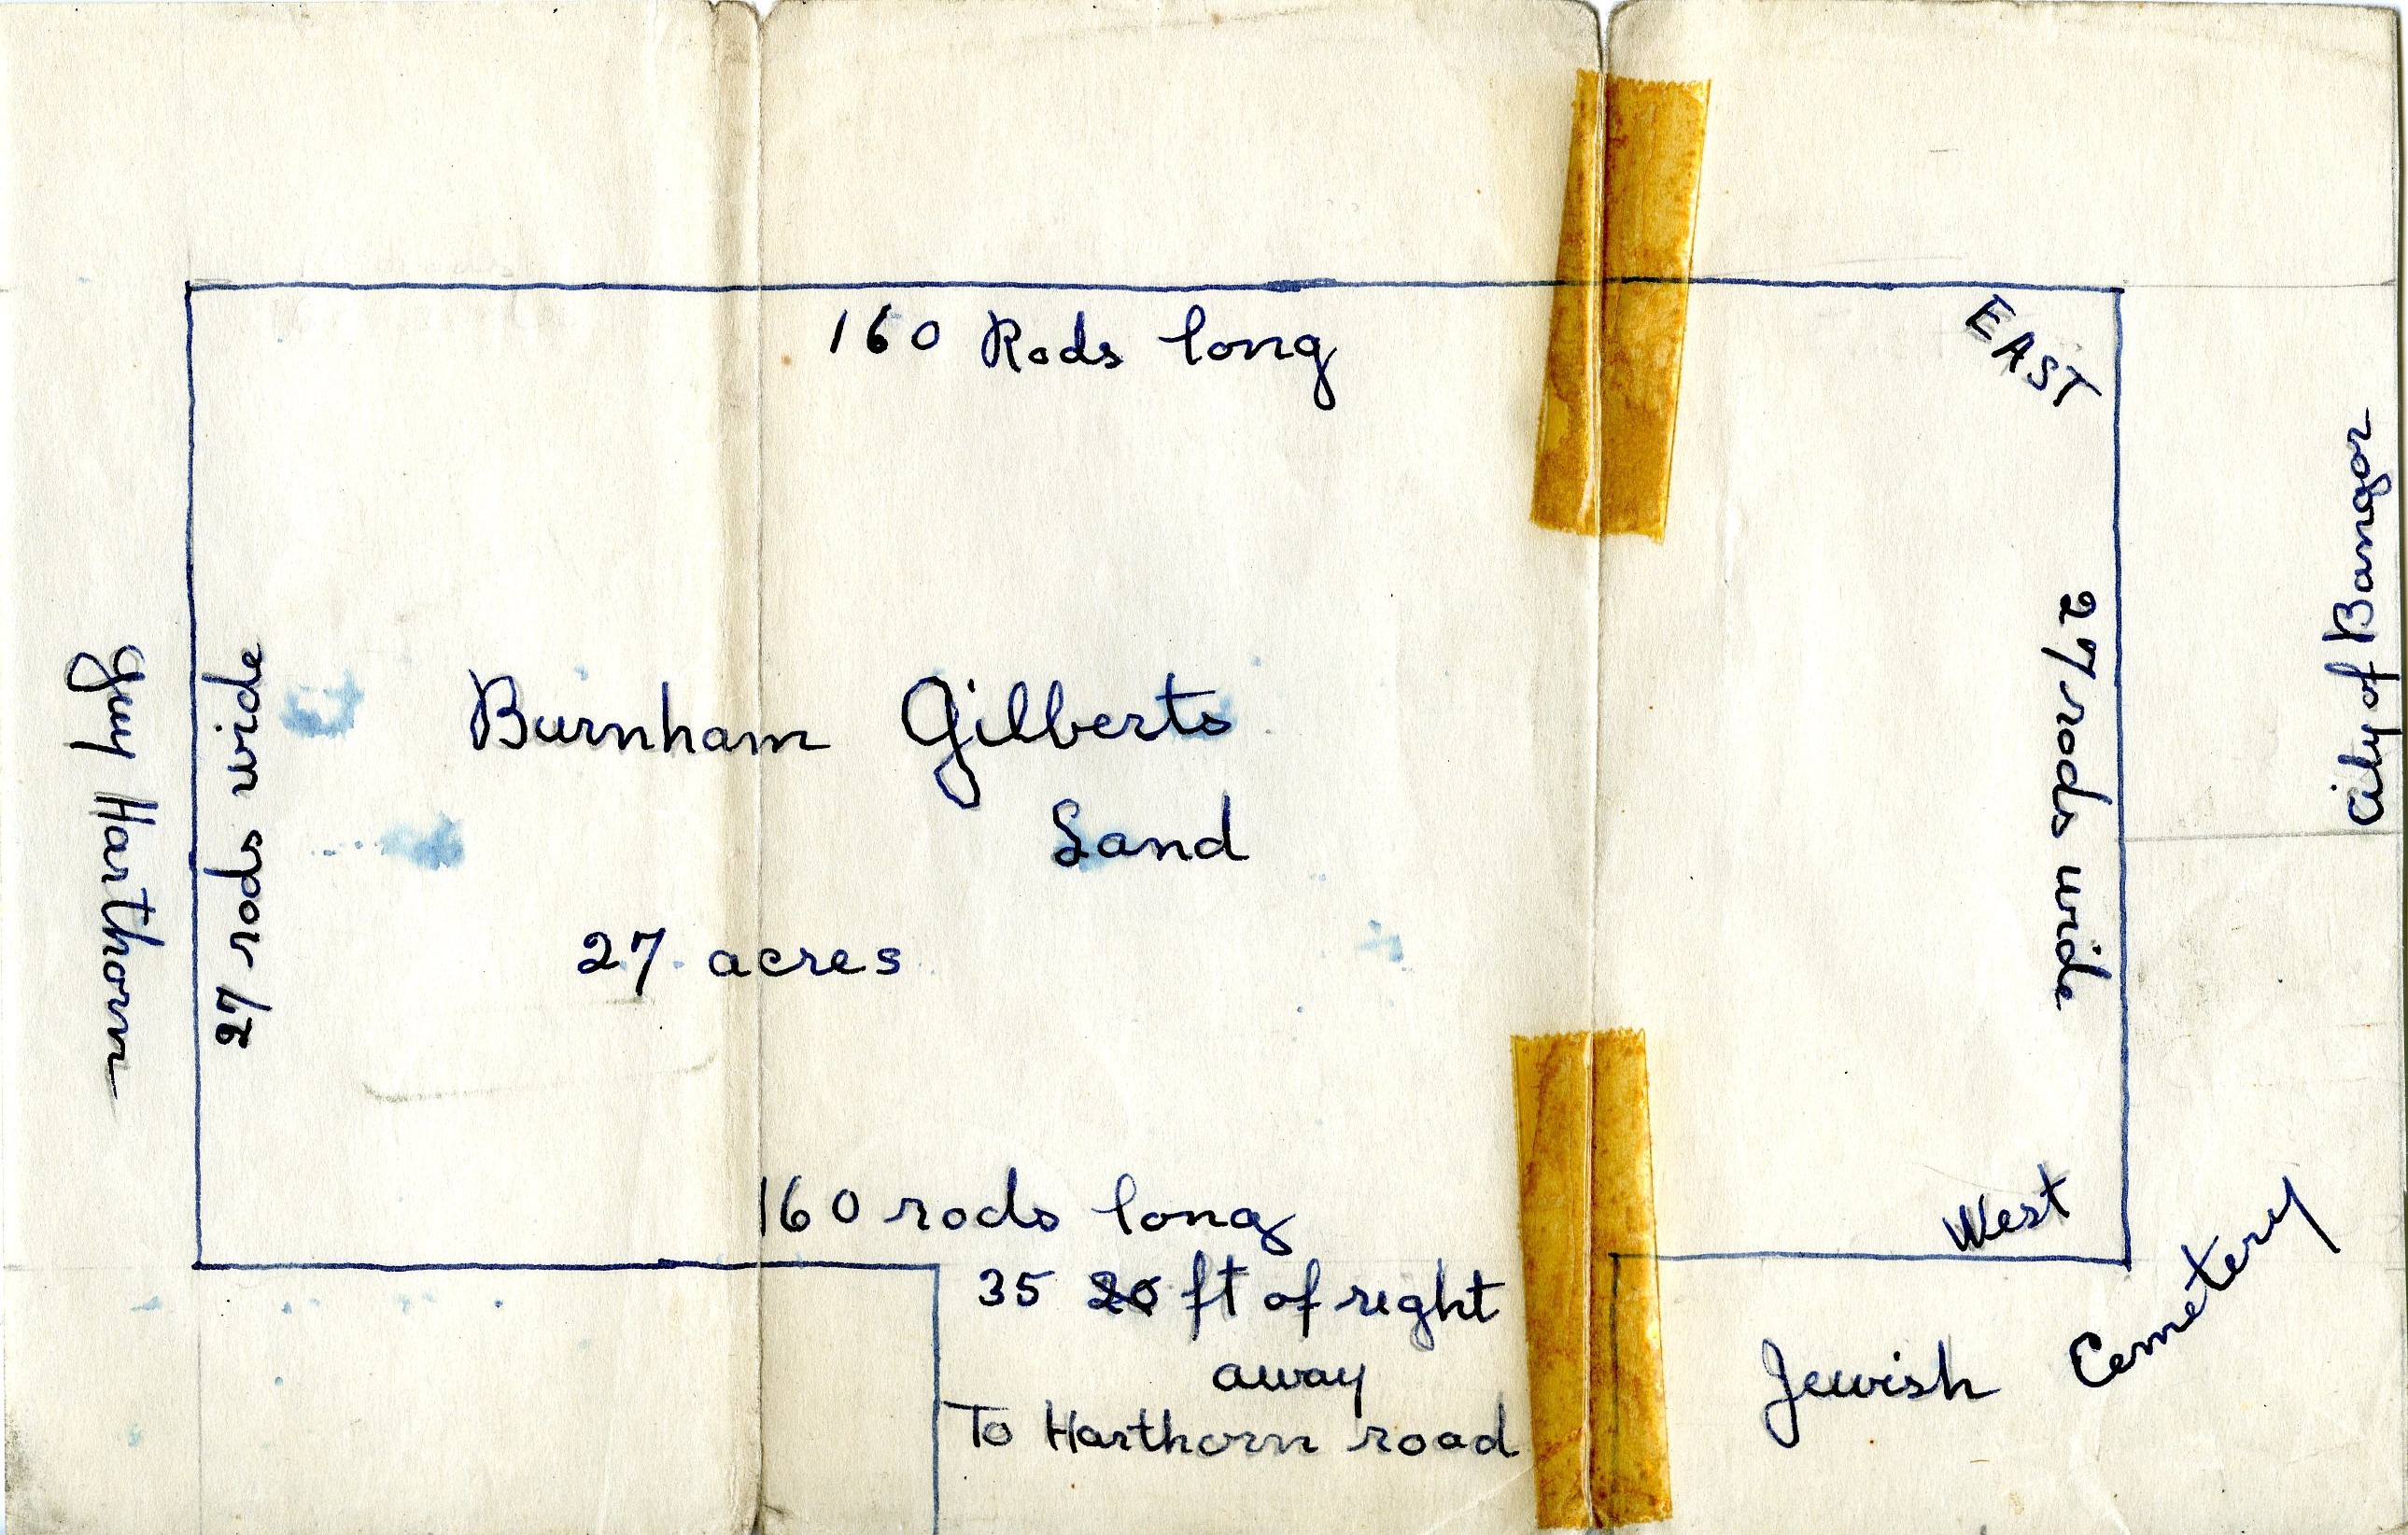 160 Rods long
EAST
City of Bangor
27 rods wide
27 rods wide
Guy Harthorn
Burnham Gilberts
Land
27 acres
160 rods long
West
35 20 ft of right
away
To Harthorn road
Jewish Cemetery